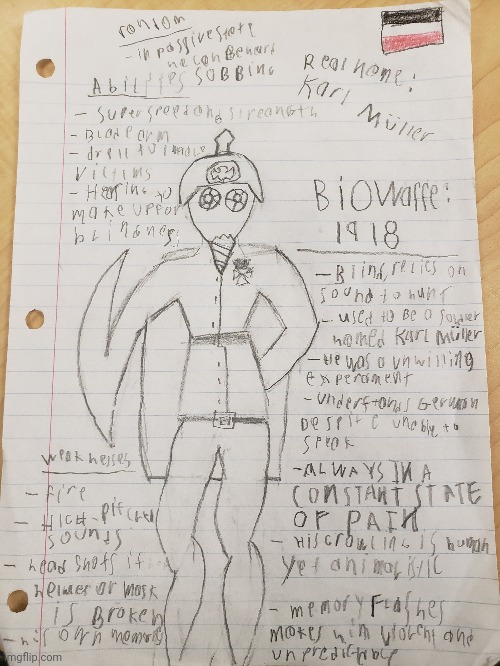 random
- in passive state
he can be heart
SOBBING
Abilities
- super speed and strength
- Blade arm
- drell to impale
victims
- Hering to
make up for
blindness
Real name:
Karl
Müller
BiOWaffe:
1918
- Blind, relies on
sound to hunt
- used to be a soldier
named Karl Müller
- He was a unwilling
experament
- understands German
Despite unable to
speak
- ALWAYS IN A
CONSTANT STATE
OF PAIN
- His growling is human
yet animalistic
- memory Flashes
makes him violent and
unpredictable
weaknesses
- Fire
- HIGH-pitched
sounds
- head shots if
helmet or mask
is Broken
- his own memories
imgflip.com